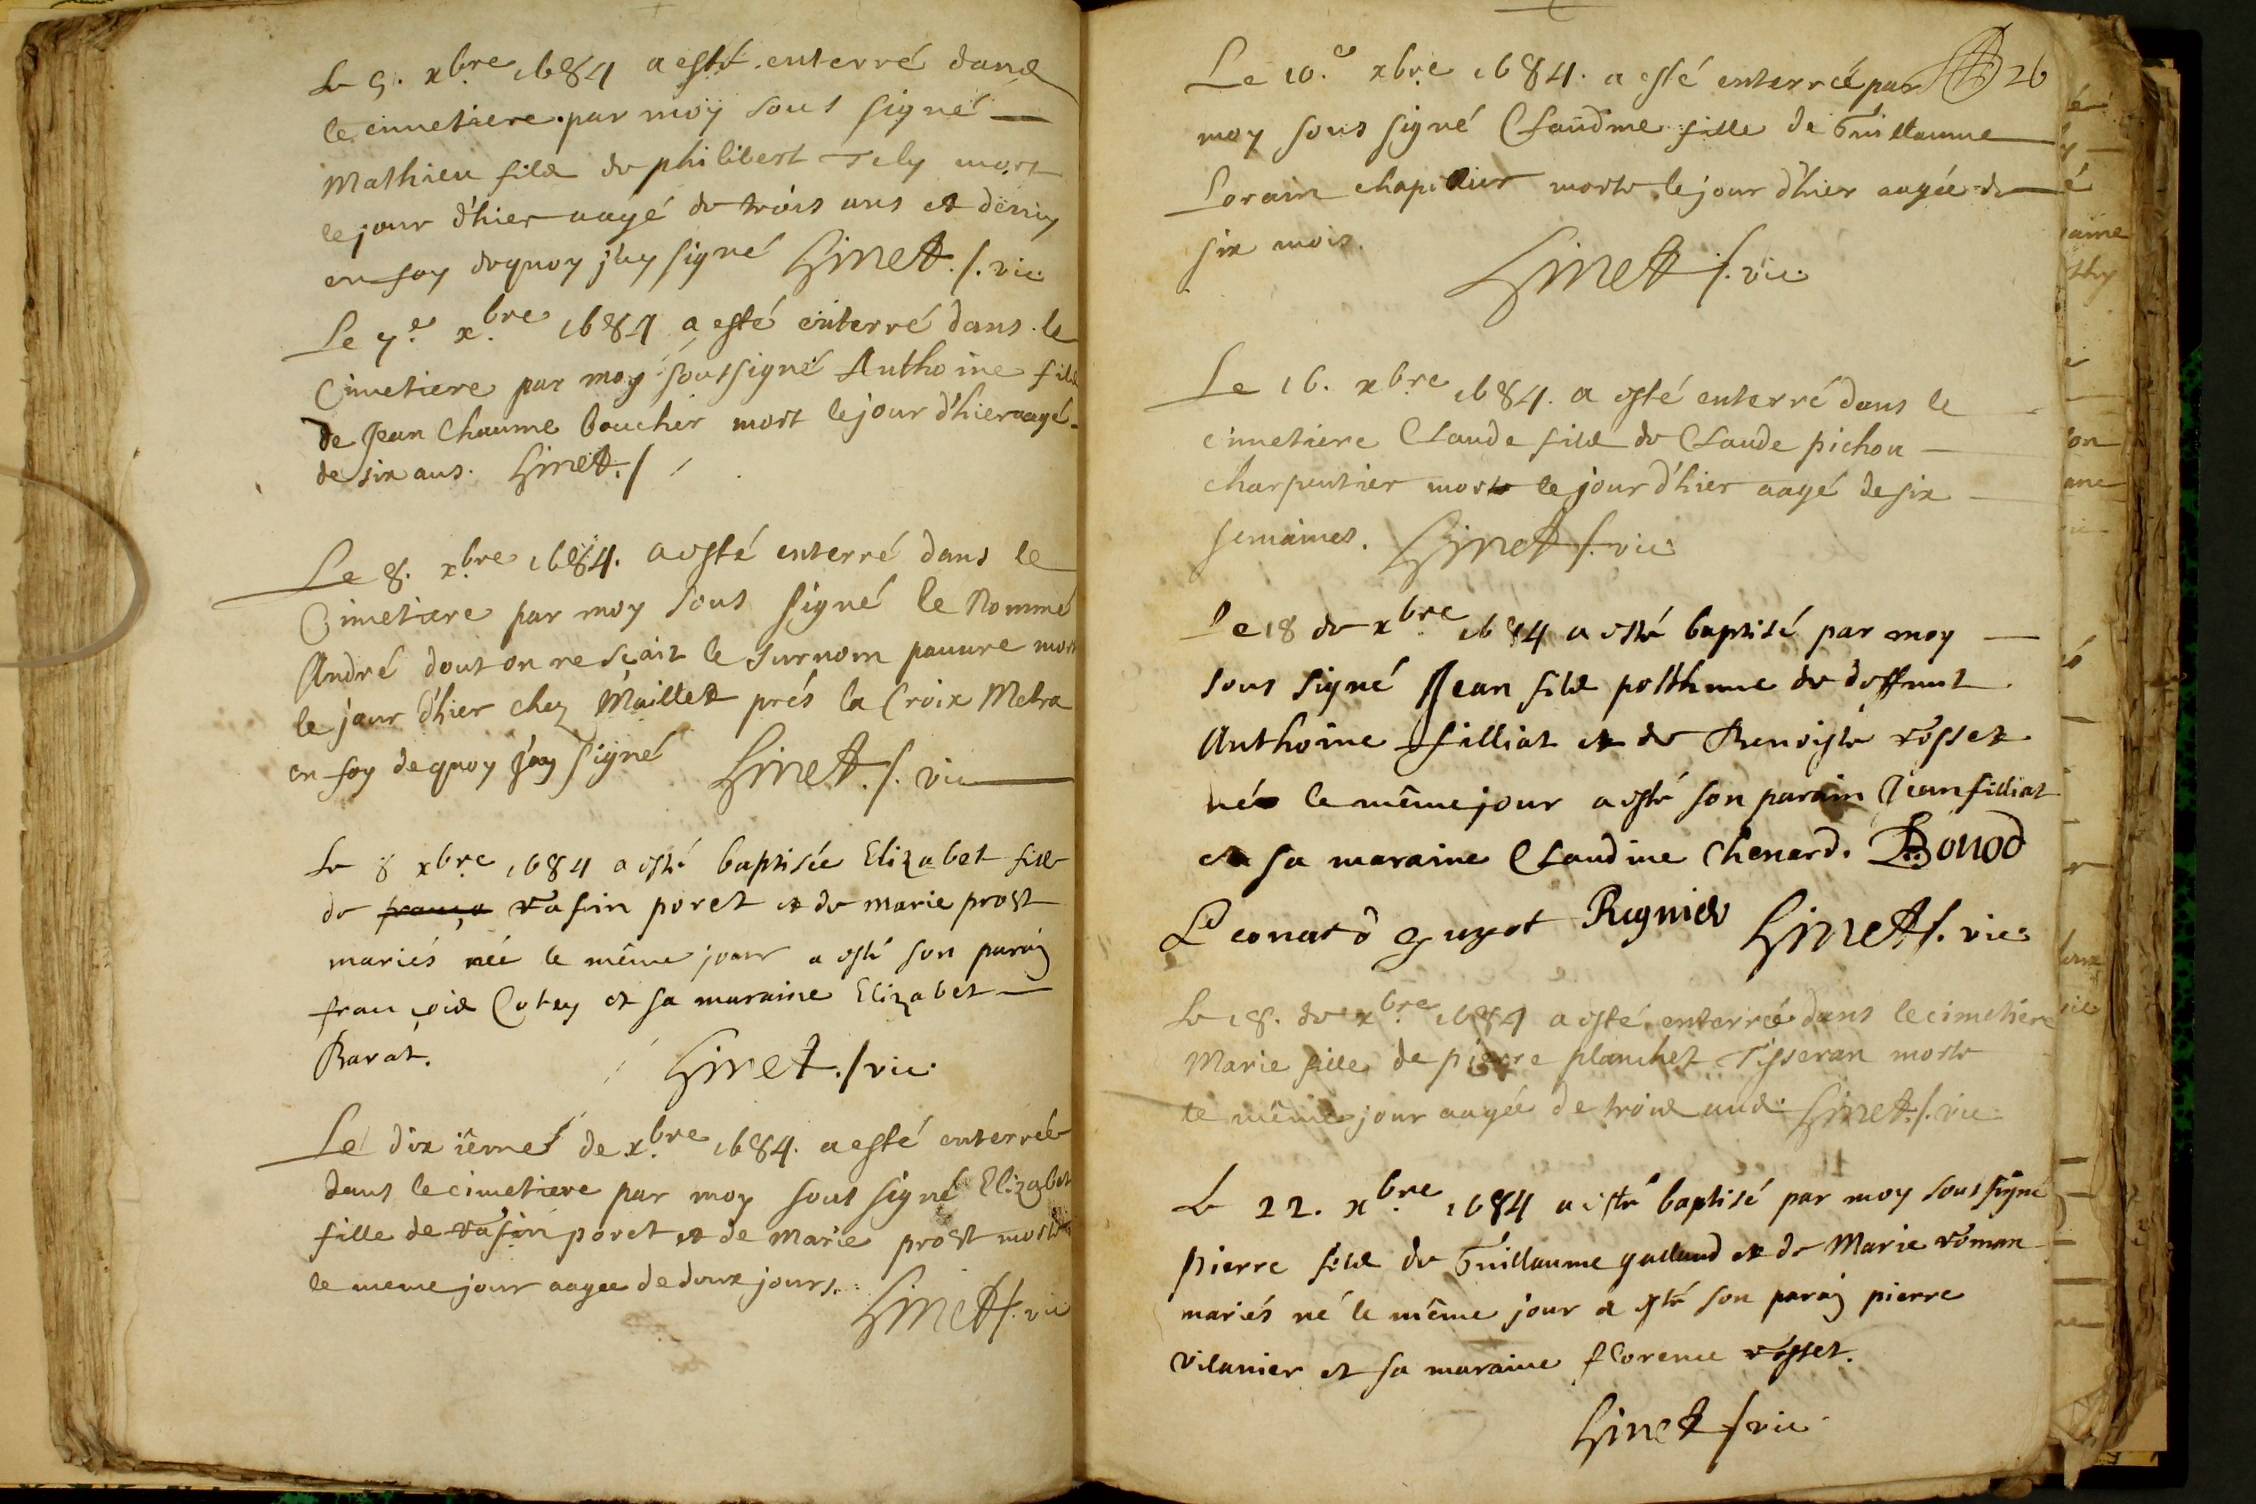 Le 5. xbre 1684 a esté enterré dans
le cimetiere par moy sous signé
Mathieu fils de philibert Tely mort
le jour d'hier aagé de trois ans et demy
en foy dequoy j'ay signé Ginet./. vic.
Le 7.e xbre 1684 a esté enterré dans le
Cimetiere par moy soussigné Anthoine fils
de Jean Chaume boucher mort le jour d'hier aagé
de six ans. Ginet./
Le 8. xbre 1684. a esté enterré dans le
Cimetiere par moy sous signé le Nommé
André dont on ne sçait le surnom pauure mort
le jour d'hier chez Maillet prés la Croix Metra
en foy dequoy j'ay signé Ginet./. vic
Le 8 xbre 1684 a esté baptisée Elizabet fille
de vasin poret et de marie prost
mariés née le même jour a esté son parain
françois Cotey et sa maraine Elizabet
Barat. Ginet./ vic.
Le dixiême de xbre 1684. a esté enterrée
dans le cimetiere par moy sous signé Elizabet
fille de vasin poret et de Marie prost morte
le meme jour aagee de deux jours. Ginet/. vic
Le 10.e xbre 1684. a esté enterrée par 26
moy sous signé Claudine fille de Guillaume
Lorain chapelier morte le jour d'hier aagée de
six mois.
Ginet /. vic
Le 16. xbre 1684. a esté enterré dans le
cimetiere Claude fils de Claude pichon
charpentier mort le jour d'hier aagé de six
semaines. Ginet /. vic.
Le 18 de xbre 1684 a esté baptisé par moy
sous signé Jean fils posthume de deffunt
Anthoine filliat et de Benoiste rosset
né le même jour a esté son parain Jean filliat
et sa maraine Claudine Chenard. Bonod
Leonard guyot Regnier Ginet/. vic.
Le 18. de xbre 1684 a esté enterrée dans le cimetiere
Marie fille de pierre planchet Tisseran morte
le même jour aagée de trois ans. Ginet./. vic.
Le 22. xbre 1684 a esté baptisé par moy sous signé
pierre fils de Guillaume galland et de Marie roman
mariés né le même jour a esté son parain pierre
vilanier et sa maraine florence rosset.
Ginet / vic.